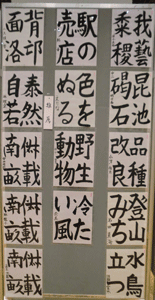 我藝
黍稷
昆池
碣石
品種
改良
登山
みち
水鳥
立つ
駅の
売店
色を
ぬる
野生
動物
冷た
い風
背邙
面洛
泰然
自若
俶載
南畝
俶載
南畝
俶載
南畝